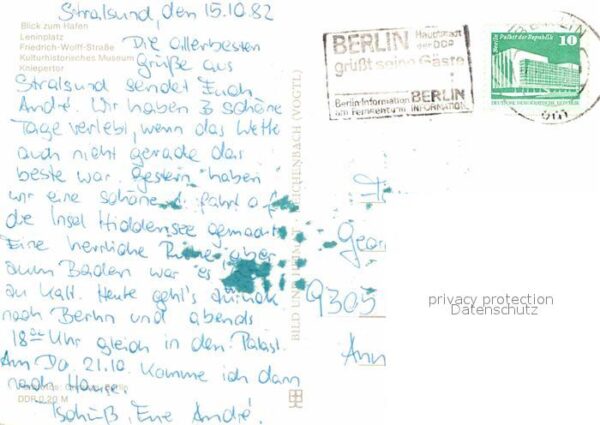 Stralsund, den 15.10.82
Blick zum Hafen
Leninplatz
Friedrich-Wolff-Straße
Kulturhistorisches Museum
Kniepertor
Die allerbesten
Grüße aus
Stralsund sendet Euch
André. Wir haben 3 schöne
Tage verlebt, wenn das Wetter
auch nicht gerade das
beste war. Gestern haben
wir eine schöne fahrt
die Insel Hiddensee gemacht
Eine herrliche Ruhe aber
zum Baden war es
zu kalt. Heute geht's zurück
nach Berlin und abends
18°° Uhr gleich in den Palast.
Am Do. 21.10. komme ich dann
nach Hause.
Berlin
DDR 0,20 M
Tschüß, Eure André.
BILD UND HEIMAT REICHENBACH (VOGTL)
BERLIN Hauptstadt der DDR
grüßt seine Gäste
Berlin-Information am Fernsehturm
BERLIN INFORMATION
BERLIN
Palast der Republik
10
DEUTSCHE DEMOKRATISCHE REPUBLIK
Geor
9305
Ann
privacy protection
Datenschutz